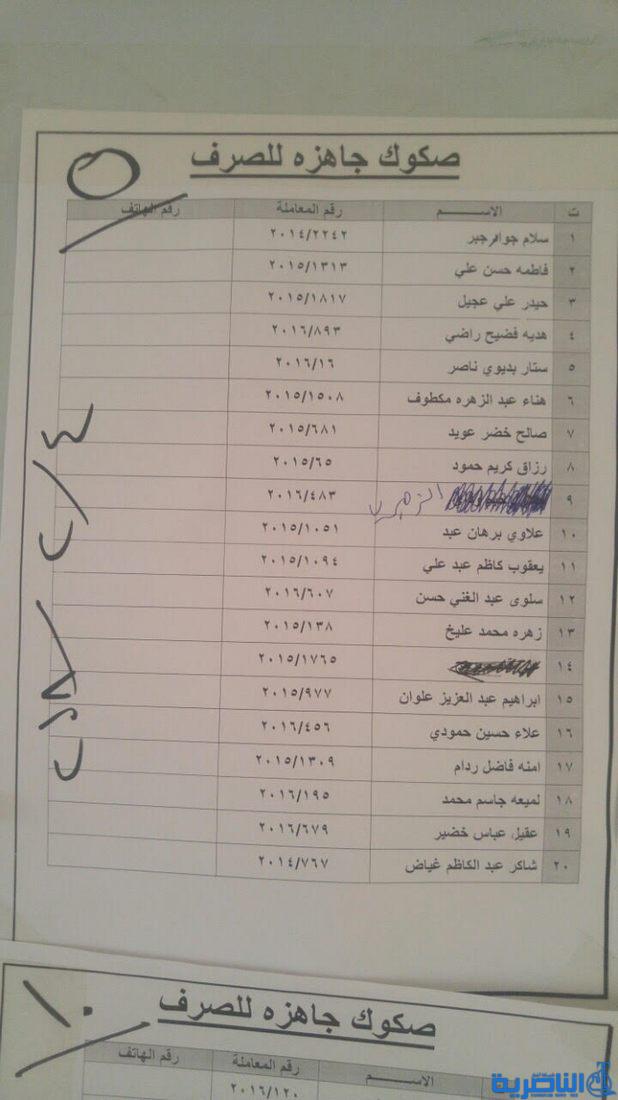 صكوك جاهزه للصرف
ت الاســـم رقم المعاملة رقم الهاتف
١ سلام جوافرجبر ٢٠١٤/٢٢٤٢
٢ فاطمه حسن علي ٢٠١٥/١٣١٣
٣ حيدر علي عجيل ٢٠١٥/١٨١٧
٤ هديه فضيح راضي ٢٠١٦/٨٩٣
٥ ستار بديوي ناصر ٢٠١٦/١٦
٦ هناء عبد الزهره مكطوف ٢٠١٥/١٥٠٨
٧ صالح خضر عويد ٢٠١٥/٦٨١
٨ رزاق كريم حمود ٢٠١٥/٦٥
٩ ٢٠١٦/٤٨٣
١٠ علاوي برهان عبد ٢٠١٥/١٠٥١
١١ يعقوب كاظم عبد علي ٢٠١٥/١٠٩٤
١٢ سلوى عبد الغني حسن ٢٠١٦/٦٠٧
١٣ زهره محمد عليخ ٢٠١٥/١٣٨
١٤ ٢٠١٥/١٧٦٥
١٥ ابراهيم عبد العزيز علوان ٢٠١٥/٩٧٧
١٦ علاء حسين حمودي ٢٠١٦/٤٥٦
١٧ امنه فاضل ردام ٢٠١٥/١٣٠٩
١٨ لميعه جاسم محمد ٢٠١٦/١٩٥
١٩ عقيل عباس خضير ٢٠١٦/٦٧٩
٢٠ شاكر عبد الكاظم غياض ٢٠١٤/٧٦٧
١٠
صكوك جاهزه للصرف
الاســـم رقم المعاملة رقم الهاتف
٢٠١٦/١٢٠
الناصرية